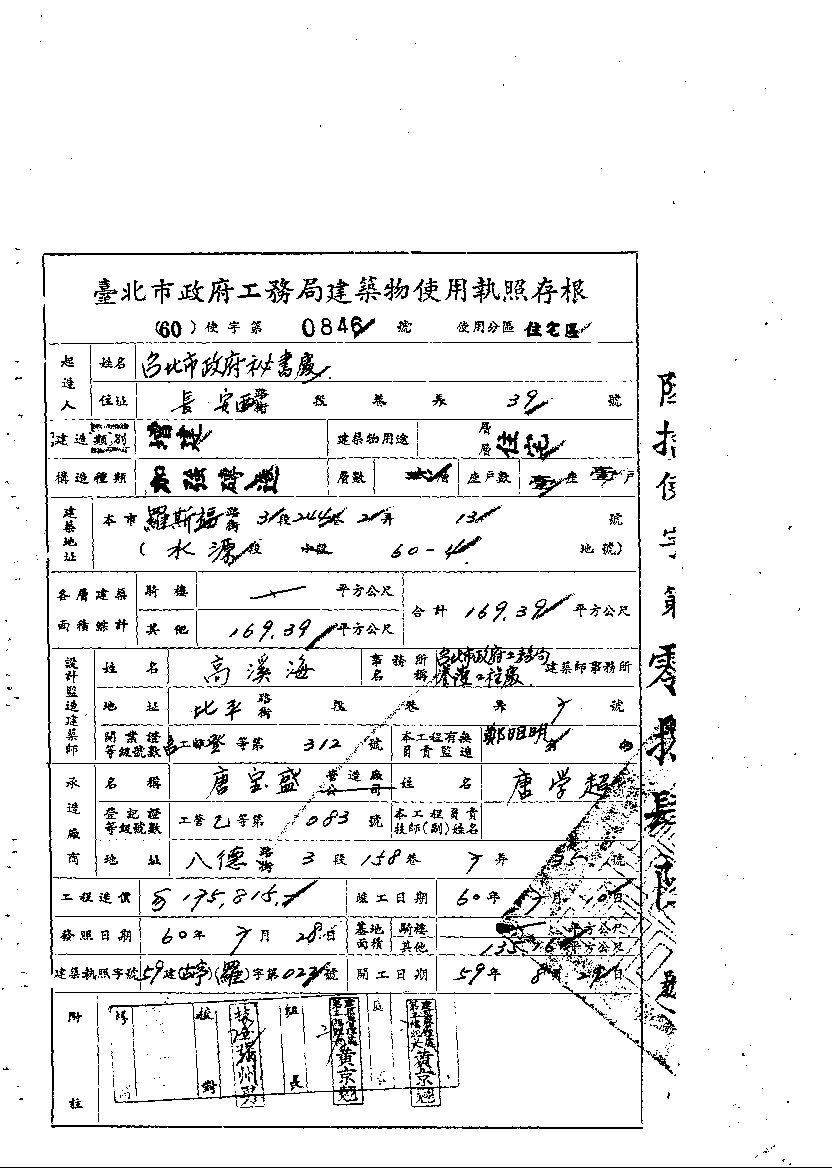 臺北市政府工務局建築物使用執照存根
(60)使字第 0846 號 使用分區 住宅區
起造人 姓名 台北市政府祕書處
住址 長安西路街 段 巷 弄 39 號
建造類別 增建 建築物用途 層層 住宅
構造種類 加強磚造 層數 層 座戶數 壹座 壹戶
建築地址 本市 羅斯福路街 3段244巷2弄 13 號
(水源段 小段 60-4 地號)
各層建築面積總計 騎樓 — 平方公尺 合計 169.39 平方公尺
其他 169.39 平方公尺
設計監造建築師 姓名 高溪海 事務所名稱 台北市政府工務局養護工程處 建築師事務所
地址 北平路街 段 巷 弄 7 號
開業證等級號數 工師登 等第 312 號 本工程有無負責監造 鄭明明
承造廠商 名稱 唐宝盛 營造廠公司 姓名 唐学超
登記證等級號數 工管乙等第 083 號 本工程負責技師(副)姓名
地址 八德路街 3段158巷 7弄 35 號
工程造價 $175,815 竣工日期 60年 7月 10日
發照日期 60年7月28日 基地面積 騎樓 平方公尺
其他 135.16 平方公尺
建築執照字號 59建(古亭)(羅)字第 號 開工日期 59年 8月 日
附註 核對 組長 黃京翹 黃京翹
陸拾使字第零捌